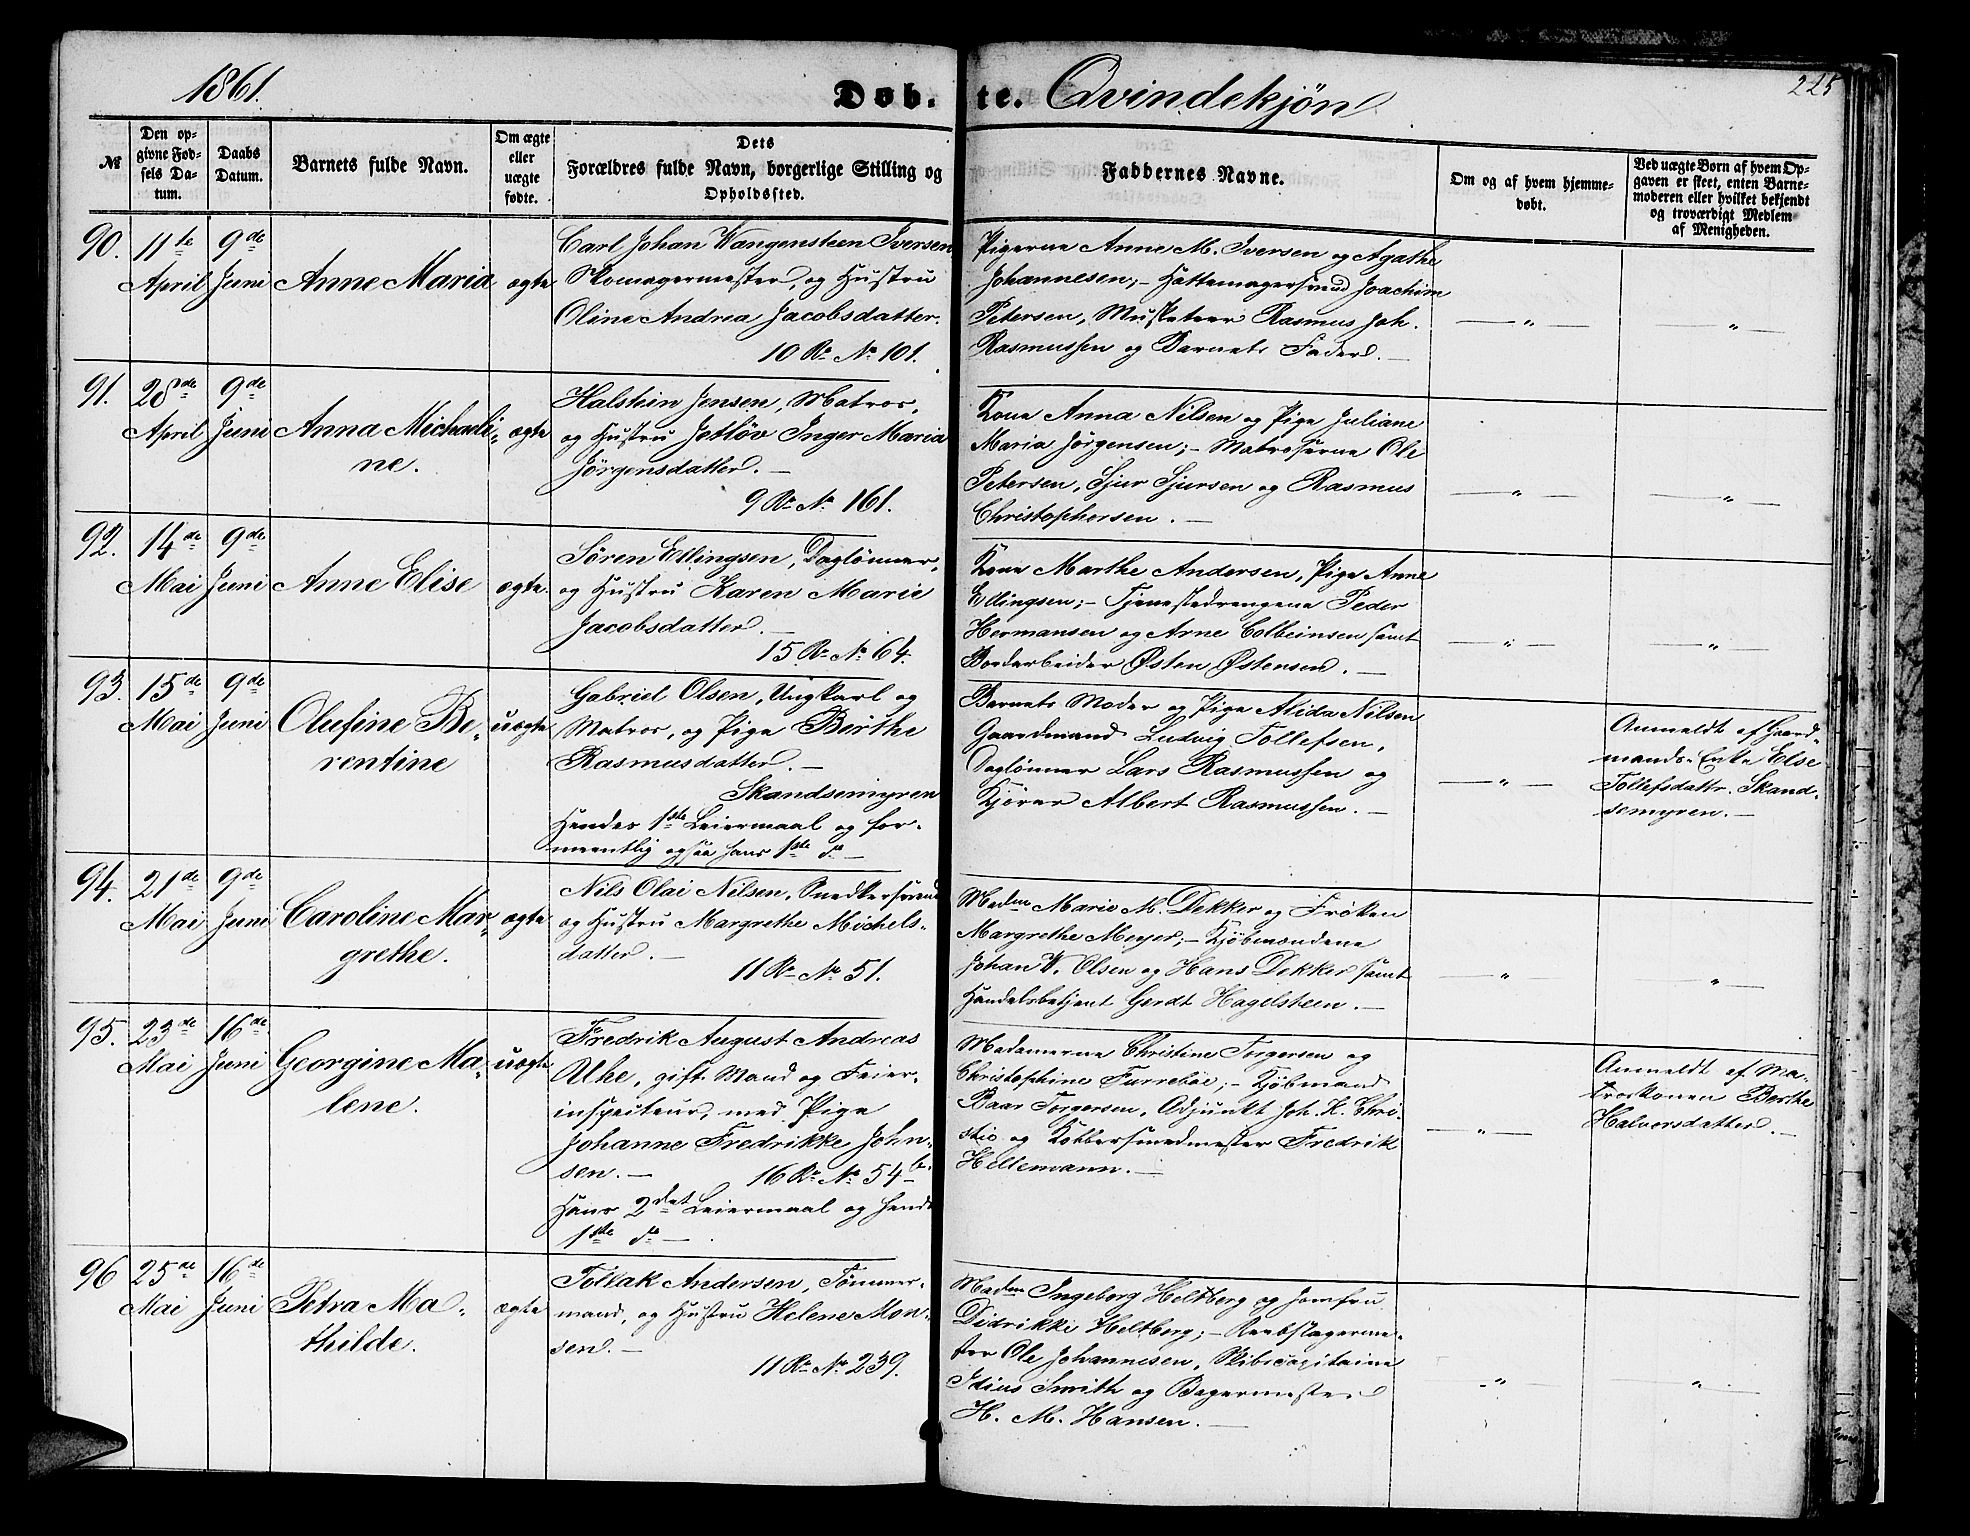 1861.
Døbte. Qvindekjøn
225
№
Den opgivne Fødsels Datum.
Daabs Datum.
Barnets fulde Navn.
Om ægte eller uægte fødte.
Dets Forældres fulde Navn, borgerlige Stilling og Opholdssted.
Faddernes Navne.
Om og af hvem hjemmedøbt.
Ved uægte Børn af hvem Opgaven er skeet, enten Barnemoderen eller hvilket bekjendt og troværdigt Medlem af Menigheden.
90. 11te April 9de Juni Anne Maria ægte
Carl Johan Wangensteen Iversen
Skomagermester, og Hustru
Oline Andrea Jacobsdatter.
10 R. No 101.
Pigerne Anne M. Iversen og Agathe
Johannesen; – Hattemagersvend Joachim
Petersen, Musketeer Rasmus Joh.
Rasmussen og Barnets Fader. –
– „ –
– „ –
91. 28de April 9de Juni Anna Michaeli-
ne. ægte
Halstein Jensen, Matros,
og Hustru Jetløv Inger Maria
Jörgensdatter. –
9 R. No 161.
Kone Anna Nilsen og Pige Juliane
Maria Jörgensen; – Matroserne Ole
Petersen, Sjur Sjursen og Rasmus
Christophersen. –
– „ –
– „ –
92. 14de Mai 9de Juni Anne Elise ægte.
Søren Ellingsen, Daglønner,
og Hustru Karen Marie
Jacobsdatter. –
15 R. No 64.
Kone Marthe Andersen, Pige Anne
Ellingsen; – Tjenestedrengene Peder
Hermansen og Arne Colbeinsen samt
Bordarbeider Østen Østensen. –
– „ –
– „ –
93. 15de Mai 9de Juni Olufine Be-
rentine uægte
Gabriel Olsen, Ungkarl og
Matros, og Pige Berthe
Rasmusdatter. –
Skandsemyren
Hendes 1ste Leiermaal og for-
meentlig ogsaa hans 1ste do –
Barnets Moder og Pige Alida Nilsen
Gaardmand Ludvig Tollefsen,
Daglønner Lars Rasmussen og
Kjører Albert Rasmussen. –
– „ –
Anmeldt af Gaard-
mands-Enke Else
Tollefsdattr. Skand-
semyren. –
94. 21de Mai 9de Juni Caroline Mar-
grethe. ægte
Nils Olai Nilsen, Snedkersvend
og Hustru Margrethe Michels-
datter. –
11 R. No 51.
Madm Marie M. Dekker og Frøken
Margrethe Meyer; – Kjøbmændene
Johan W. Olsen og Hans Dekker samt
Handelsbetjent Gerdt Hagelsteen. –
– „ –
– „ –
95. 23de Mai 16de Juni Georgine Ma-
lene. uægte
Fredrik August Andreas
Uhe, gift Mand og Feier-
inspecteur, med Pige
Johanne Fredrikke John-
sen. – 16 R. No 54 b.
Hans 2det Leiermaal og hendes
1ste do –
Madamerne Christine Torgersen og
Christophine Furreböe; – Kjöbmand
Baar Torgersen, Adjunkt Joh. K. Chri-
stie og Kobbersmedmester Fredrik
Heltemann. –
– „ –
Anmeldt af Ma-
troskonen Berthe
Halvorsdatter. –
96 25de Mai 16de Juni Petra Ma-
thilde. ægte
Tollak Andersen, Tømmer-
mand, og Hustru Helene Mon-
sen. –
11 R. No 239.
Madm Ingeborg Heltberg og Jomfru
Didrikke Heltberg; – Reebslagerme-
ster Ole Johannesen, Skibscapitaine
Idius Smith og Bagermester
H. M. Hansen. –
– „ –
– „ –